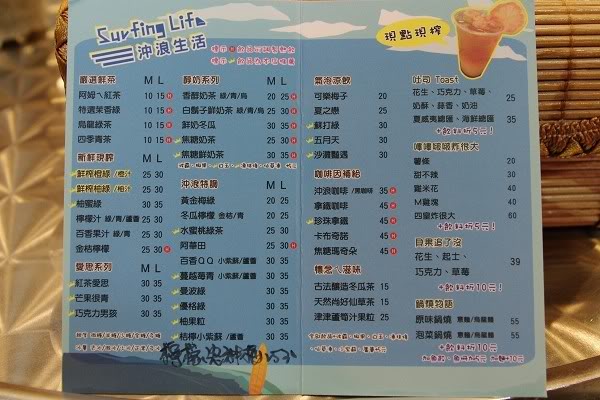 Surfing Life
沖浪生活
現點現搾
嚴選鮮茶 M L
阿姆ㄟ紅茶 10 15 H
特選茉香綠 10 15 H
烏龍綠茶 10 15 H
四季青茶 10 15 H
新鮮現搾 M L
鮮搾橙綠/橙汁 25 30
鮮搾柚綠/柚汁 25 30
柚蜜綠 30 35
檸檬汁 綠/青/蘆薈 25 30
百香果汁 綠/青 25 30
金桔檸檬 25 30 H
愛思系列
紅茶愛思 30 35
芒果很青 30 35
巧克力男孩 30 35
醇奶系列 M L
香醇奶茶 綠/青/烏 20 25 H
白鬍子鮮奶茶 綠/青/烏 25 30 H
鮮奶冬瓜 30 35
焦糖奶茶 25 30 H
焦糖鮮奶茶 30 35 H
沖浪特調 M L
黃金梅綠 20 25
冬瓜檸檬 金桔/青 20 25
水蜜桃綠茶 25 30
阿華田 25 30 H
百香QQ 小紫蘇/蘆薈 25 30
蔓越莓青 小紫蘇/蘆薈 30 35
愛波綠 30 35
優格綠 30 35
柚果粒 30 35
桔檸小紫蘇/蘆薈 30 35
氣泡涼飲
可樂梅子 20
夏之戀 25
蘇打綠 30
五月天 30
沙灘豔遇 30
咖啡因補給
沖浪咖啡/黑咖啡 35 H
拿鐵咖啡 35 H
珍珠拿鐵 45 H
卡布奇諾 45 H
焦糖瑪奇朵 45 H
懷念ㄟ滋味
古法釀造冬瓜茶 15
天然尚好仙草茶 15
津津蘆筍汁果粒 25
吐司 Toast
花生、巧克力、草莓、
奶酥、蒜香、奶油 25
夏威夷總匯、海鮮總匯 35
+飲料折5元!
薯條 20
甜不辣 30
雞米花 40
M雞塊 40
四皇炸很大 60
+飲料折5元!
貝果追了沒
花生、起士、
巧克力、草莓 39
+飲料折10元!
鍋燒物語
原味鍋燒 意麵/烏龍麵 55
泡菜鍋燒 意麵/烏龍麵 55